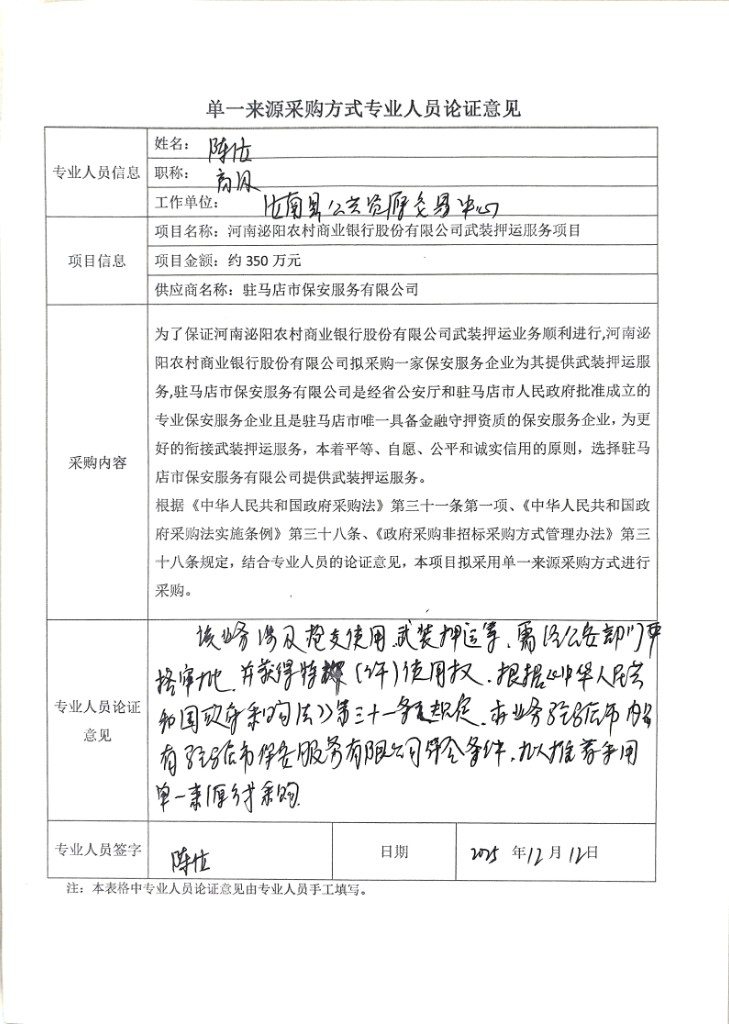 单一来源采购方式专业人员论证意见
专业人员信息
姓名：陈位
职称：高级
工作单位：汝南县公共资源交易中心
项目信息
项目名称：河南泌阳农村商业银行股份有限公司武装押运服务项目
项目金额：约 350 万元
供应商名称：驻马店市保安服务有限公司
采购内容
为了保证河南泌阳农村商业银行股份有限公司武装押运业务顺利进行,河南泌
阳农村商业银行股份有限公司拟采购一家保安服务企业为其提供武装押运服
务,驻马店市保安服务有限公司是经省公安厅和驻马店市人民政府批准成立的
专业保安服务企业且是驻马店市唯一具备金融守押资质的保安服务企业，为更
好的衔接武装押运服务，本着平等、自愿、公平和诚实信用的原则，选择驻马
店市保安服务有限公司提供武装押运服务。
根据《中华人民共和国政府采购法》第三十一条第一项、《中华人民共和国政
府采购法实施条例》第三十八条、《政府采购非招标采购方式管理办法》第三
十八条规定，结合专业人员的论证意见，本项目拟采用单一来源采购方式进行
采购。
专业人员论证
意见
该业务涉及枪支使用、武装押运等，需经公安部门严
格审批，并获得持（弹）使用权，根据《中华人民共
和国政府采购法》第三十一条规定，本业务驻马店市内只
有驻马店市保安服务有限公司符合条件，故推荐采用
单一来源方式采购
专业人员签字
陈位
日期
2025 年12月12日
注：本表格中专业人员论证意见由专业人员手工填写。